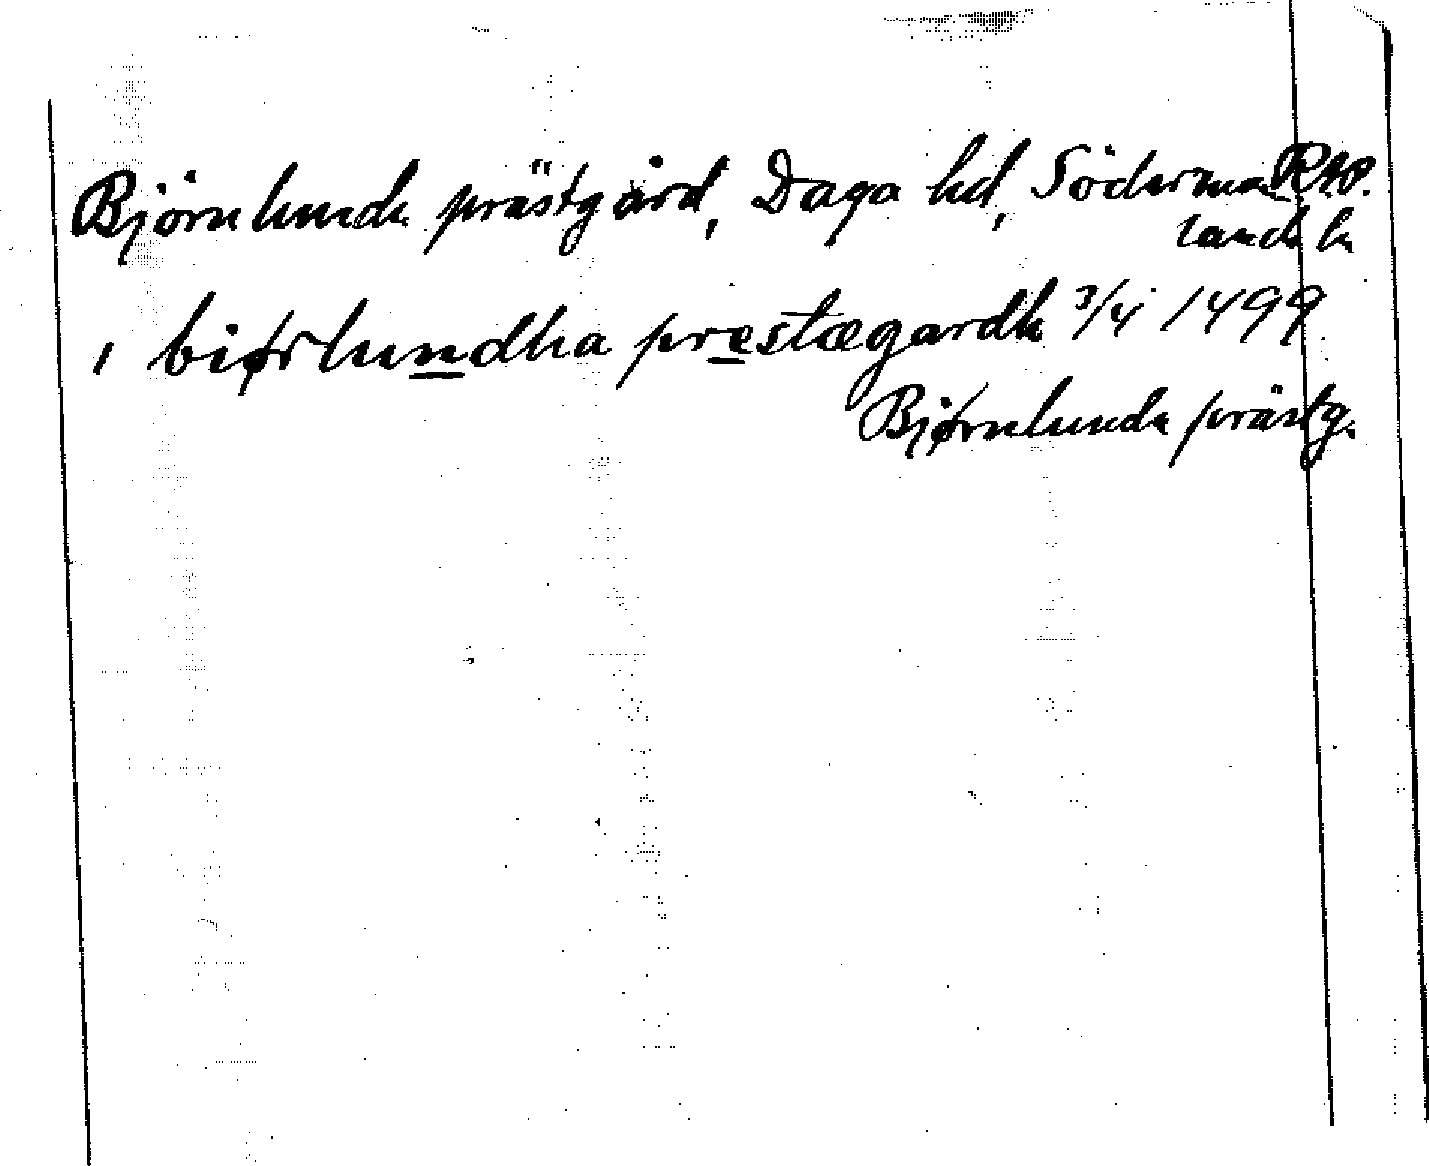 Björnlunda prästgård, Daga hd, Söderman RAP.
lands l.
i biørlundha prestægardh 3/4 1499
Bjørnlunda prästg.